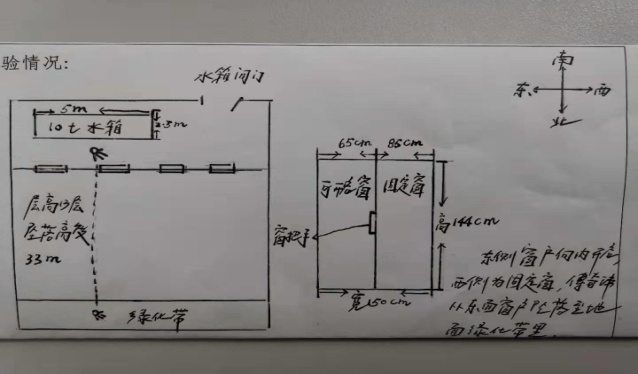 验情况:
水箱间门
5m
2.5m
10t水箱
层高13层
坠落高度
33m
绿化带
65cm
85cm
可开启窗
固定窗
窗把手
高144cm
宽150cm
南
东
西
北
东侧窗户向内开启
西侧为固定窗,
从东面窗户坠落至地
面绿化带里.